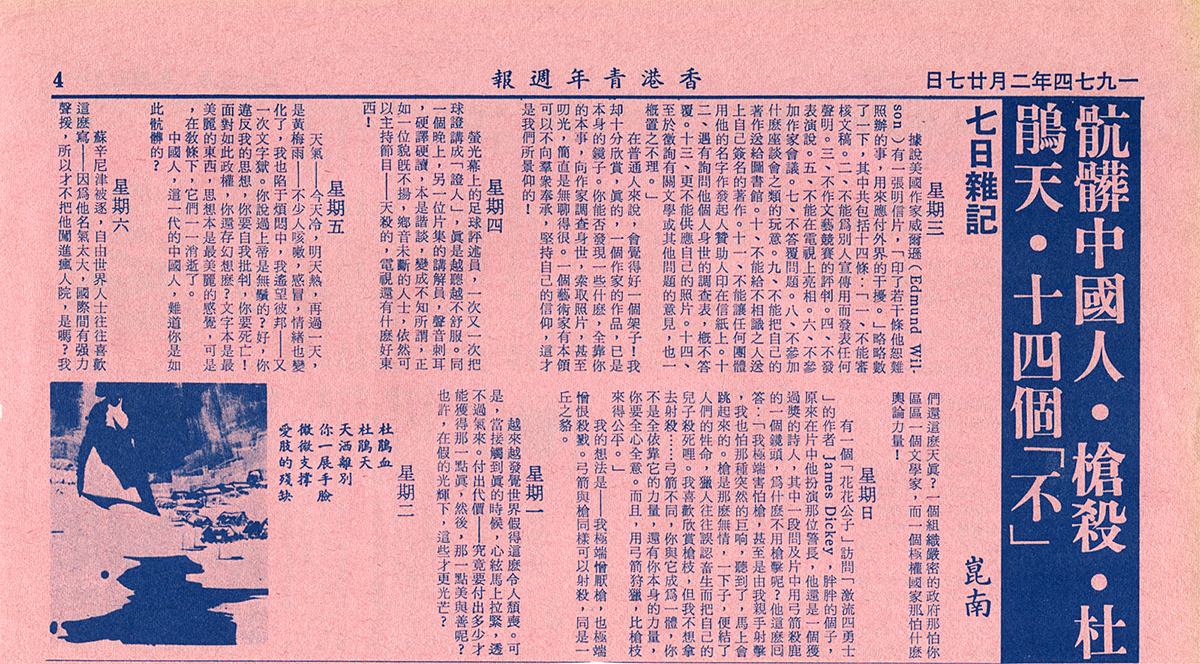 4
香港青年週報
一九七四年二月廿七日
骯髒中國人・槍殺・杜
鵑天・十四個「不」
崑南
七日雜記
星期三
據說美國作家威爾遜（Edmund Wil-
son）有一張明信片，「印了若干條他恕難
照辦的事，用來應付外界的干擾。」略略數
了一下，其中共包括十四條：「一、不能審
核文稿。二、不能爲別人宣傳用而發表任何
聲明。三、不作文藝競賽的評判。四、不發
表演說。五、不能在電視上亮相。六、不參
加作家會議。七、不答覆問題。八、不參加
什麼座談會之類的玩意。九、不能把自己的
著作送給圖書館。十、不能給不相識之人送
上自己簽名的著作。十一、不能讓任何團體
用他的名字作發起人贊助人印在信紙上。十
二、遇有詢問他個人身世的調查表，概不答
覆。十三、更不能供應自己的照片。十四、
至於徵詢有關文學或其他問題的意見，也一
概置之不理。」
在普通人來說，會覺得好一個架子！我
却十分欣賞，眞的，一個作家的作品，已是
本身的鏡子。你能否發現一些什麼，全靠你
的本事，向作家調查身世，索取照片，甚至
叨光。簡直是無聊得很。一個藝術家有本領
可以不向羣衆奉承，堅持自己的信仰，這才
是我們所景仰的！
星期四
螢光幕上的足球評述員，一次又一次把
球證講成「證人」，眞是越聽越不舒服。同
一個晚上，另一位片集的講解員，聲音刺耳
，硬譯硬讀，本是諧談，變成不知所謂，正
如一位貌旣不揚，鄉音未斷的人士，依然可
以主持節目——天殺的，電視還有什麼好東
西！
星期五
天氣——今天冷，明天熱，再過一天，
是黃梅雨——不少人咳嗽，感冒，情緒也變
化了，我也陷于煩悶中，我遙望彼邦——又
一次文字獄。你說過上帝是無鬚的？好，你
違反我的思想，你要自我批判，你要死亡！
面對如此政權，你還存幻想麼？文字本是最
美麗的東西，思想本是最美麗的感覺，可是
，在敎條下，它們一一消逝了。
中國人，這一代的中國人，難道你是如
此骯髒的？
星期六
蘇辛尼津被逐，自由世界人士往往喜歡
這麼寫——因爲他名氣太大，國際間有强力
聲援，所以才不把他闖進瘋人院，是嗎？我
們還這麼天眞？一個組織嚴密的政府那怕你
區區一個文學家，而一個極權國家那怕什麼
輿論力量！
星期日
有一個「花花公子」訪問「激流四勇士
」的作者 James Dickey，胖胖的個子，
原來在片中他扮演那位警長，他還是一個獲
過獎的詩人，其中一段問及片中用弓箭殺鹿
的一個鏡頭，爲什麼不用槍擊呢？他這麼回
答：「我極端害怕槍，甚至是由我親手射擊
，我也怕那種突然的巨响，聽到了，馬上會
跳起來的。槍是那麼無情，一下子，便結了
人們的性命，獵人往往誤認畜生而把自己的
兒子殺死哩。我喜歡欣賞槍枝，但我不想拿
去射殺……弓箭不同，你與它成爲一體，你
不是全依靠它的力量，還有你本身的力量，
你要全心全意。而且，用弓箭狩獵，比槍枝
來得公平。」
我的想法是——我極端憎厭槍，也極端
憎恨殺戮。弓箭與槍同樣可以射殺，同是一
丘之貉。
星期一
越來越發覺世界假得這麼令人頹喪。可
是，當接觸到眞的時候，心絃馬上拉緊，透
不過氣來。付出代價——究竟要付出多少才
能獲得那一點眞，然後，那一點美與善呢？
也許，在假的光輝下，這些才更光芒？
星期二
杜鵑血
杜鵑天
天洒離別
你一展手臉
微微支撐
愛肢的殘缺